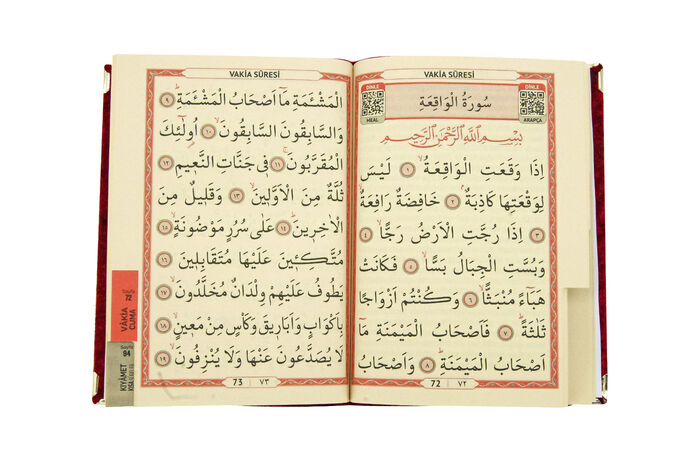 VAKİA SÛRESİ
DİNLE
MEAL
سُورَةُ الْوَاقِعَةِ
DİNLE
ARAPÇA
بِسْمِ اللّٰهِ الرَّحْمٰنِ الرَّحِيمِ
اِذَا وَقَعَتِ الْوَاقِعَةُ ۙ ﴿١﴾ لَيْسَ
لِوَقْعَتِهَا كَاذِبَةٌ ۢ ﴿٢﴾ خَافِضَةٌ رَافِعَةٌ ۙ
﴿٣﴾ اِذَا رُجَّتِ الْاَرْضُ رَجًّا ۙ ﴿٤﴾
وَبُسَّتِ الْجِبَالُ بَسًّا ۙ ﴿٥﴾ فَكَانَتْ
هَبَٓاءً مُنْبَثًّا ۙ ﴿٦﴾ وَكُنْتُمْ اَزْوَاجًا
ثَلٰثَةً ۜ ﴿٧﴾ فَاَصْحَابُ الْمَيْمَنَةِ مَٓا
اَصْحَابُ الْمَيْمَنَةِ ۜ ﴿٨﴾ وَاَصْحَابُ
72 | ٧٢
VAKİA SÛRESİ
الْمَشْـَٔمَةِ مَٓا اَصْحَابُ الْمَشْـَٔمَةِ ۜ ﴿٩﴾
وَالسَّابِقُونَ السَّابِقُونَ ۙ ﴿١٠﴾ اُو۬لٰٓئِكَ
الْمُقَرَّبُونَ ۚ ﴿١١﴾ فِي جَنَّاتِ النَّعِيمِ ﴿١٢﴾
ثُلَّةٌ مِنَ الْاَوَّلِينَ ۙ ﴿١٣﴾ وَقَلِيلٌ مِنَ
الْاٰخِرِينَ ۜ ﴿١٤﴾ عَلٰى سُرُرٍ مَوْضُونَةٍ ۙ ﴿١٥﴾
مُتَّكِـ۪ٔينَ عَلَيْهَا مُتَقَابِلِينَ ﴿١٦﴾
يَطُوفُ عَلَيْهِمْ وِلْدَانٌ مُخَلَّدُونَ ۙ ﴿١٧﴾
بِاَكْوَابٍ وَاَبَارِيقَ وَكَأْسٍ مِنْ مَعِينٍ ۙ ﴿١٨﴾
لَا يُصَدَّعُونَ عَنْهَا وَلَا يُنْزِفُونَ ۙ ﴿١٩﴾
73 | ٧٣
Sayfa
72
VÂKİA
CUMA
Sayfa
94
KIYÂMET